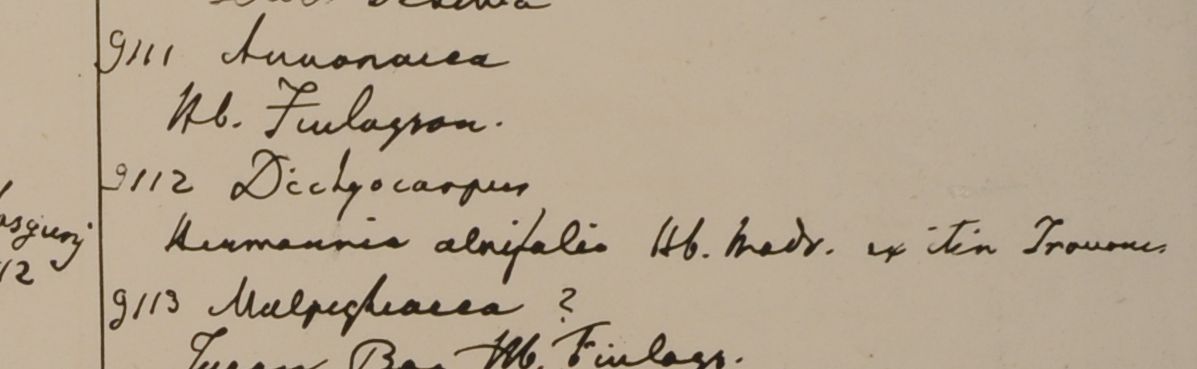 9111 Annonacea
Hb. Finlayson.
9112 Dictyocarpus
Hermannia alnifolia Hb. Madr. ex itin
12
9113 Malpighiacea ?
Hb. Finlays.